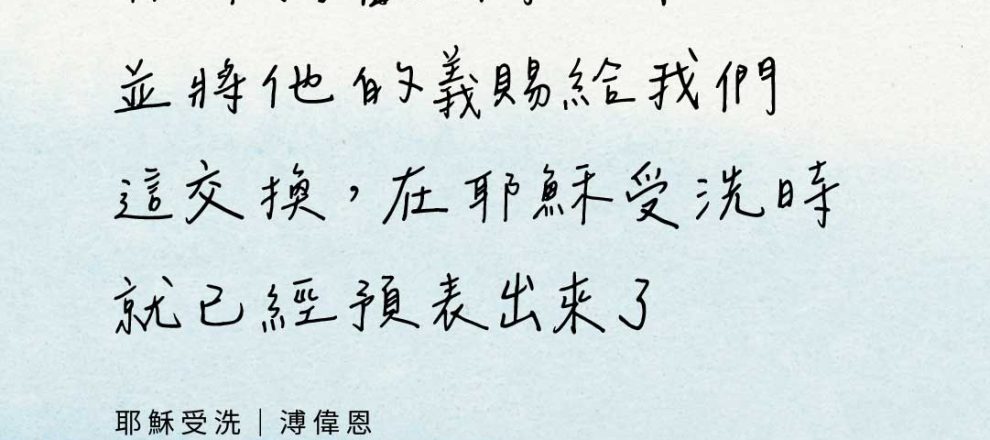 並將他的義賜給我們
這交換，在耶穌受洗時
就已經預表出來了
耶穌受洗｜溥偉恩